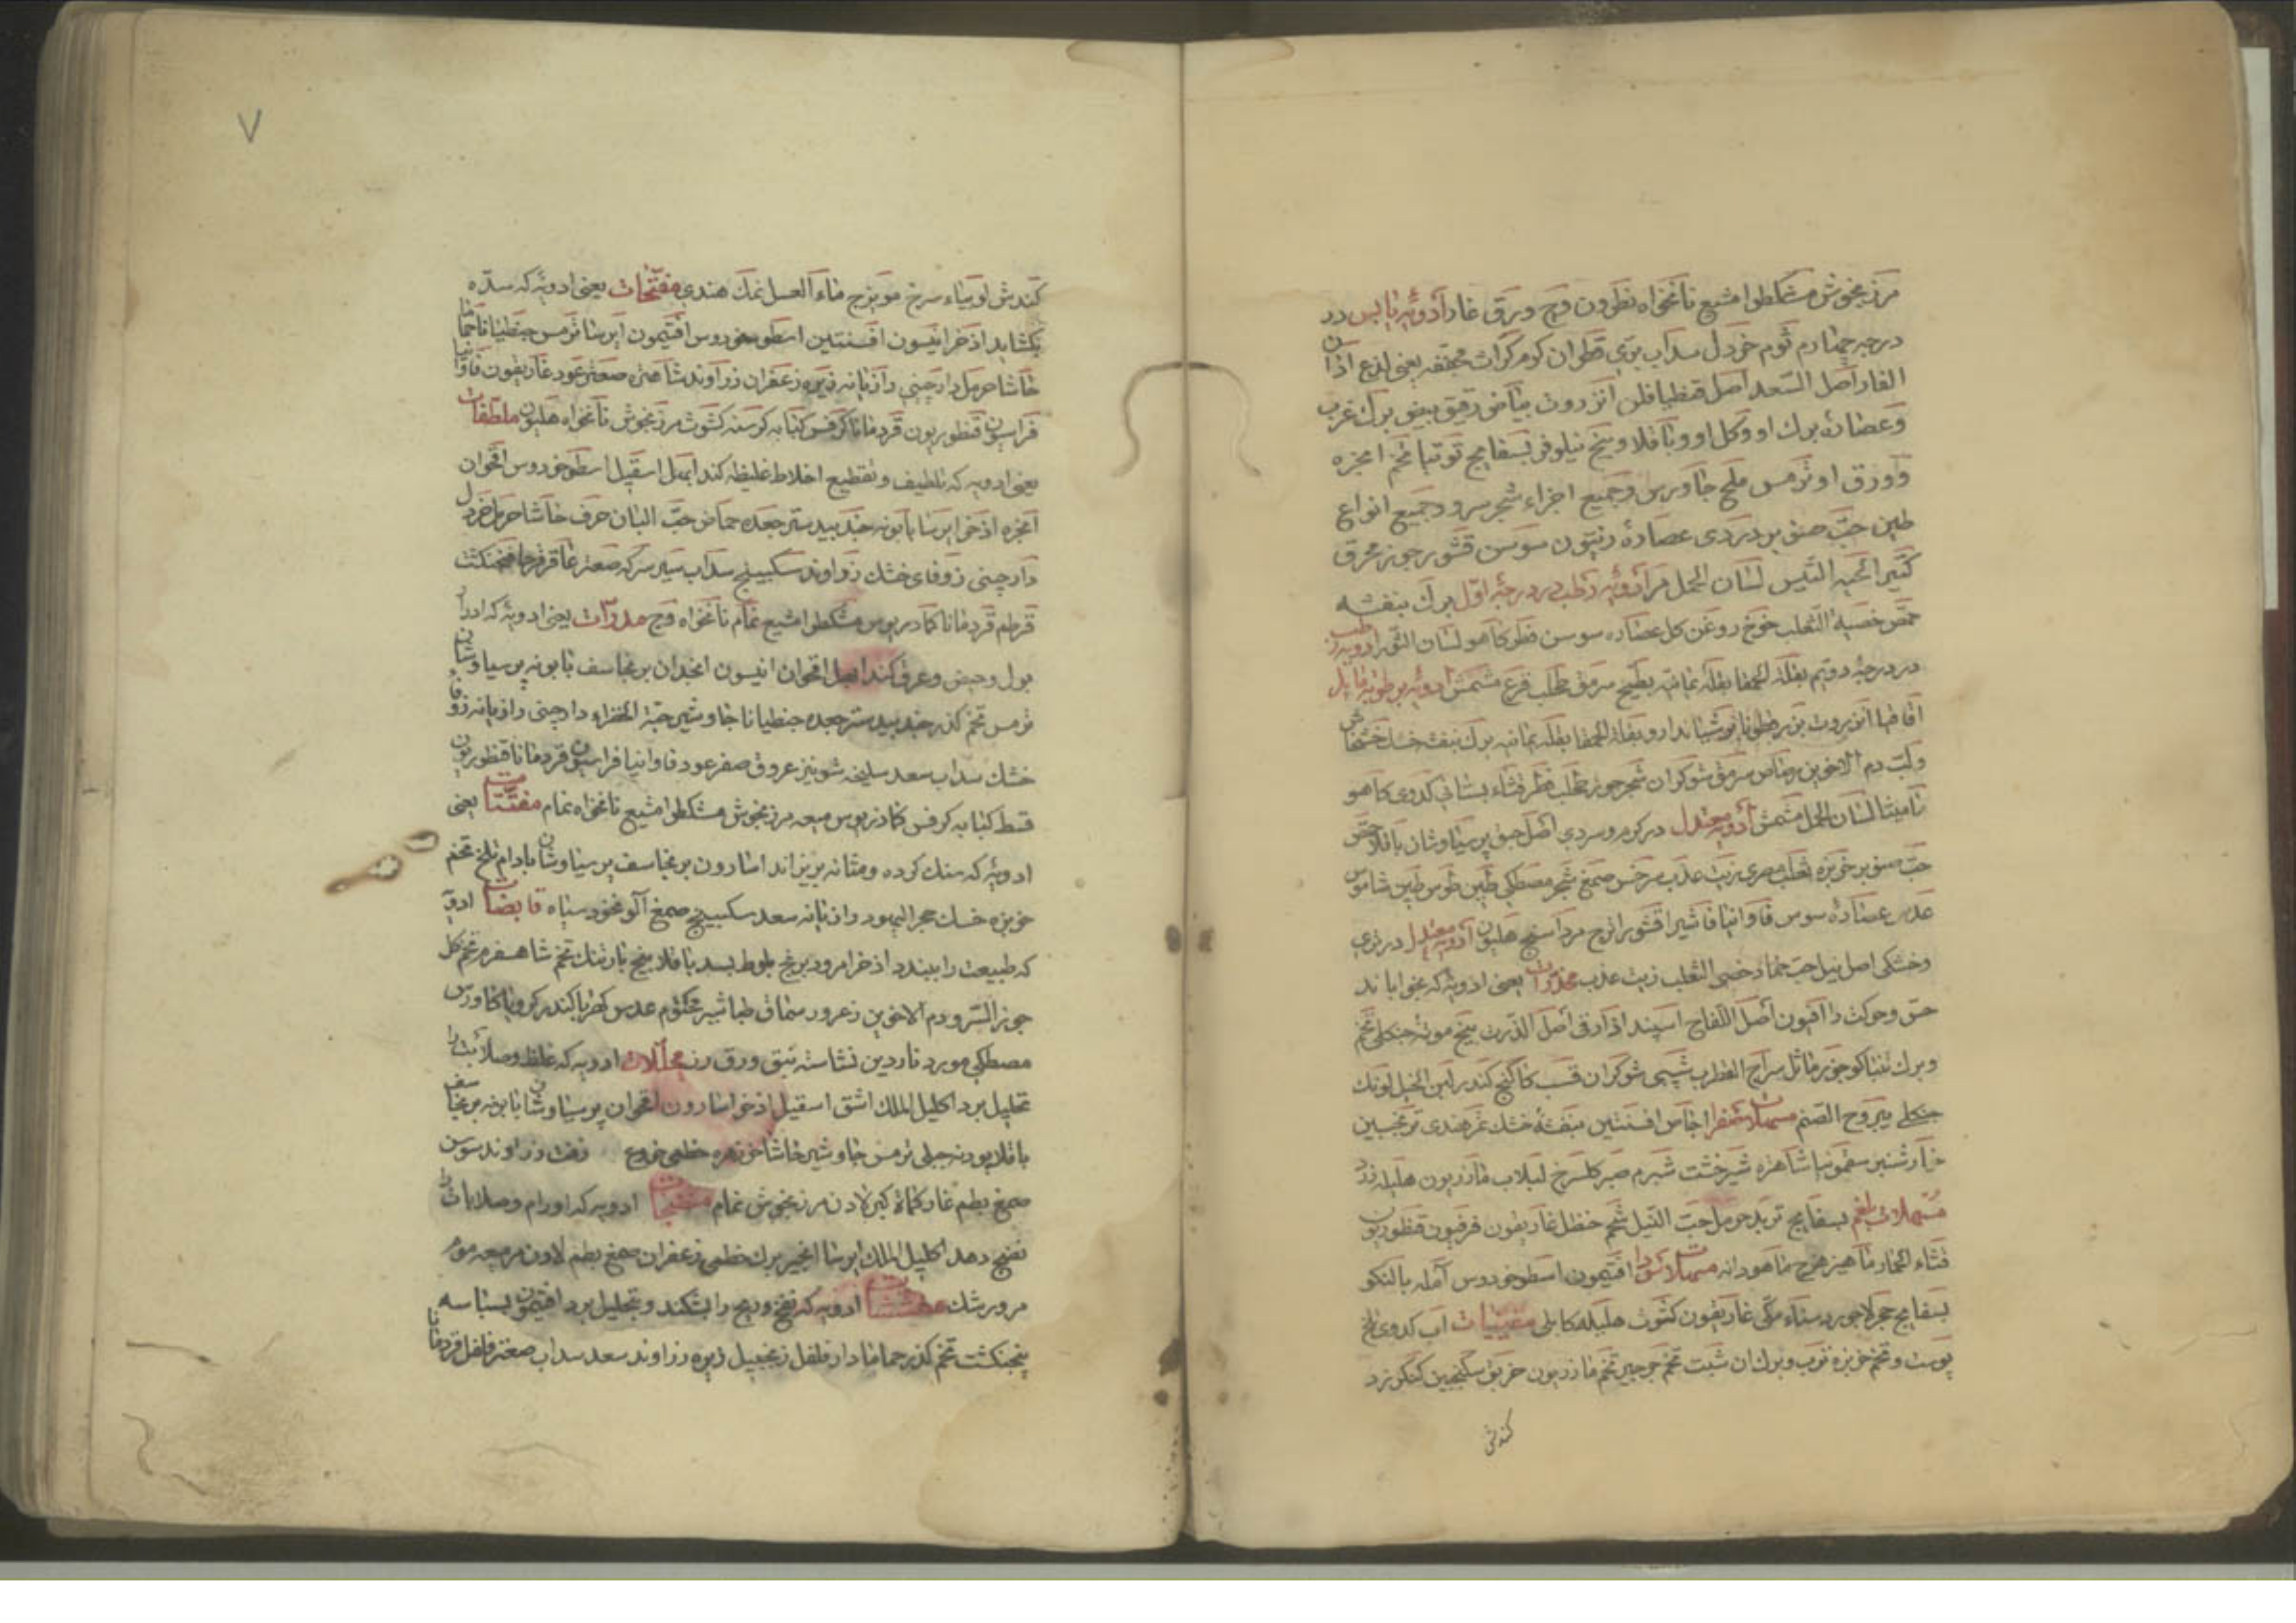 مرزنجوش مشکطرامشیع نانخواه نطرون وج ورق غار ادویهٔ یابس در
درجه چهارم ثوم خردل سداب بری قطران کرم کراث مجففه یعنی لذع اذان
الفار اصل السعد اصل قنطیافلن انزروت بیاض رقیق بیض برك غرب
وعصارهٔ برك او وکل او وباقلا وبیخ نیلوفر بسفایج توتیا تخم انجره
وورق او ترمس ملح جاورس وجمیع اجزاء شجر سرو وجمیع انواع
طین حب صنوبر دردی عصارهٔ زیتون سوسن قشور جوز محرق
کتیرا لحیة التیس لسان الحمل مر ادویهٔ رطب در درجهٔ اول برك بنفشه
حمص خصیة الثعلب خوخ روغن کل عصاره سوسن فطر کاهو لسان الثور ادویهٔ رطب
در درجهٔ دویم بقلة الحمقا بقله یمانیه بطیخ سرمق طحلب قرع مشمش ادویهٔ برطوبة مایل
اقاقیا انزروت بزرقطونا بوشیاندارو بقلة الحمقا بقله یمانیه برك بنفشه خسك خشخاش
ولب دم الاخوین رصاص سرمق شوکران شجر جوز طحلب فطر قثاء بستانی کدوی کاهو
نامیثا لسان الحمل مشمش ادویه معتدل در کرم وسردی اصل حبق پرسیاوشان باقلا حمص
حب صنوبر خربزه ثعلب مصری زیت عذب سرخس صمغ شجر مصطکی طین طوس طین شاموس
عدس عصارهٔ سوس فاوانیا فاشیرا قشور اترج مرداسنج هلیون ادویه معتدل در تری
وخشکی اصل نیل حب خصی الثعلب زیت عذب مخدرات یعنی ادویهٔ که بخواباند
حس وحرکت را افیون اصل اللفاح اسپند اذاراقی اصل الذرت بیخ موته جنکلی تخم
وبرك تنباکو جوز ماثل سراج القطرب شیپی شوکران قسب کاکنج کندر لبن الخیل لونك
جنکلی یبروح الصنم مسهلات صفرا اجاص افسنتین بنفشهٔ خشك تمرهندی ترنجبین
خیارشنبر سقمونیا شاهتره شیرخشت شبرم صبر کلسرخ لبلاب مازریون هلیله زرد
مسهلات بلغم بسفایج تربد حرمل حب النیل شحم حنظل غاریقون فرفیون قنطوریون
قثاء الحمار ماهیزهرج ماهودانه مسهلات سودا افتیمون اسطوخودوس آمله بالنکو
بسفایج حجر لاجورد سناء مکی غاریقون کشوث هلیله کابلی مقییات اب کدوی تلخ
پوست وتخم خربزه ترب وبرك ان شبت تخم جرجیر تخم مازریون خربق سکنجبین کنکرزد
کندش
۷
کندش لوبیاء سرخ مویزج ماء العسل نمك هندی مفتحات یعنی ادویهٔ که سده
بکشاید اذخر انیسون افسنتین اسطوخودوس افتیمون ایرسا ترمس جنطیانا حماما
حاشا حرمل دارچینی رازیانه زیره زعفران زراوند شاهتره صعتر عود غاریقون فاوانیا
فراسیون قنطوریون قردمانا کرفس کبابه کرسنه کشوث مرزنجوش نانخواه هلیون ملطفات
یعنی ادویه که تلطیف وتقطیع اخلاط غلیظه کند ابهل اسقیل اسطوخودوس اقحوان
انجره اذخر ایرسا بابونه جندبیدستر جعده حماض حب البان حرف حاشا حرمل خردل
دارچینی زوفای خشك زراوند سکبینج سداب سیر سرکه صعتر عاقرقرحا فنجنکشت
قرطم قردمانا کمادریوس مشکطرامشیع نمام نانخواه وج مدرات یعنی ادویهٔ که ادرار
بول وحیض وعرق کند ابهل اقحوان انیسون انجدان برنجاسف بابونه پرسیاوشان
ترمس تخم کذر جندبیدستر جعده جنطیانا جاوشیر حبة الخضراء دارچینی رازیانه زوفاء
خشك سداب سعد سلیخه شونیز عروق صفر عود فاوانیا فراسیون قردمانا قنطوریون
قسط کبابه کرفس کمادریوس میعه مرزنجوش مشکطرامشیع نانخواه نمام مفتتات یعنی
ادویهٔ که سنك کرده ومثانه بریزاند اسارون برنجاسف پرسیاوشان بادام تلخ تخم
خربزه خسك حجر الیهود رازیانه سعد سکبینج صمغ آلو نخود سیاه قابضات ادویهٔ
که طبیعت را ببندد اذخر امرود برنج بلوط بسد باقلا بنج بارتنك تخم شاهسفرم تخم کل
جوز السرو دم الاخوین زعرور سماق طباشیر مختوم عدس کهربا کندر کرویا کاورس
مصطکی مورد ناردین نشاسته نبق ورق رز محللات ادویه که غلظ وصلابت را
تحلیل برد اکلیل الملك اشق اسقیل اذخر اسارون اقحوان پرسیاوشان بابونه برنجاسف
باقلا پودنه جبلی ترمس جاوشیر حاشا خرزهره خطمی خروع زفت زراوند سوسن
صمغ بطم غار کماة کبر لادن مرزنجوش نمام منضجات ادویه که اورام وصلابات را
نضج دهد اکلیل الملك ایرسا انجیر برك خطمی زعفران صمغ بطم لادن مر میعه موم
مرورشك ادویه که نفخ وریح را بشکند وبتحلیل برد افتیمون بسباسه
پنجنکشت تخم کذر حماما دارفلفل زنجبیل زیره زراوند سعد سداب صعتر فلفل قردمانا